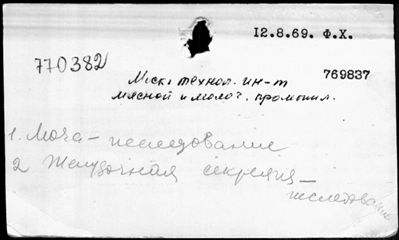 12.8.69. Ф.Х.
770382
Моск. технол. ин-т
769837
мясной и молоч. промышл.
1. Моча – исследование
2 Желудочная секреция – исследование